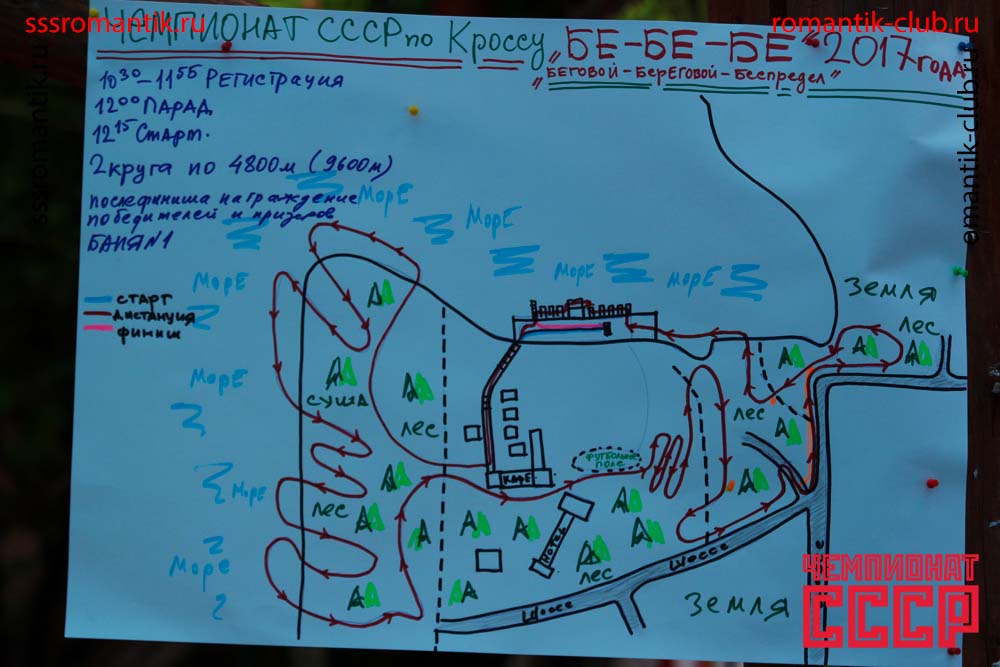 sssromantik-club.ru
romantik-club.ru
ЧЕМПИОНАТ СССР по Кроссу „БЕ-БЕ-БЕ" 2017 года
„БЕГОВОЙ-БЕРЕГОВОЙ-Беспредел"
10³⁰-11⁵⁵ Регистрация
12⁰⁰ ПАРАД.
12¹⁵ Старт.
2 круга по 4800м (9600м)
после финиша награждение
победителей и призеров
БАНЯ №1
МорЕ
МорЕ
МорЕ
МорЕ
МорЕ
СТАРТ
ДИСТАНЦИЯ
ФИНИШ
ЗЕМЛЯ
лес
МорЕ
СУША
лес
лес
ФУТБОЛЬНОЕ
ПОЛЕ
КАФЕ
МорЕ
лес
HOTEL
лес
Море
Шоссе
Шоссе
ЗЕМЛЯ
ЧЕМПИОНАТ
СССР
sssromantik-club.ru
omantik-club.ru